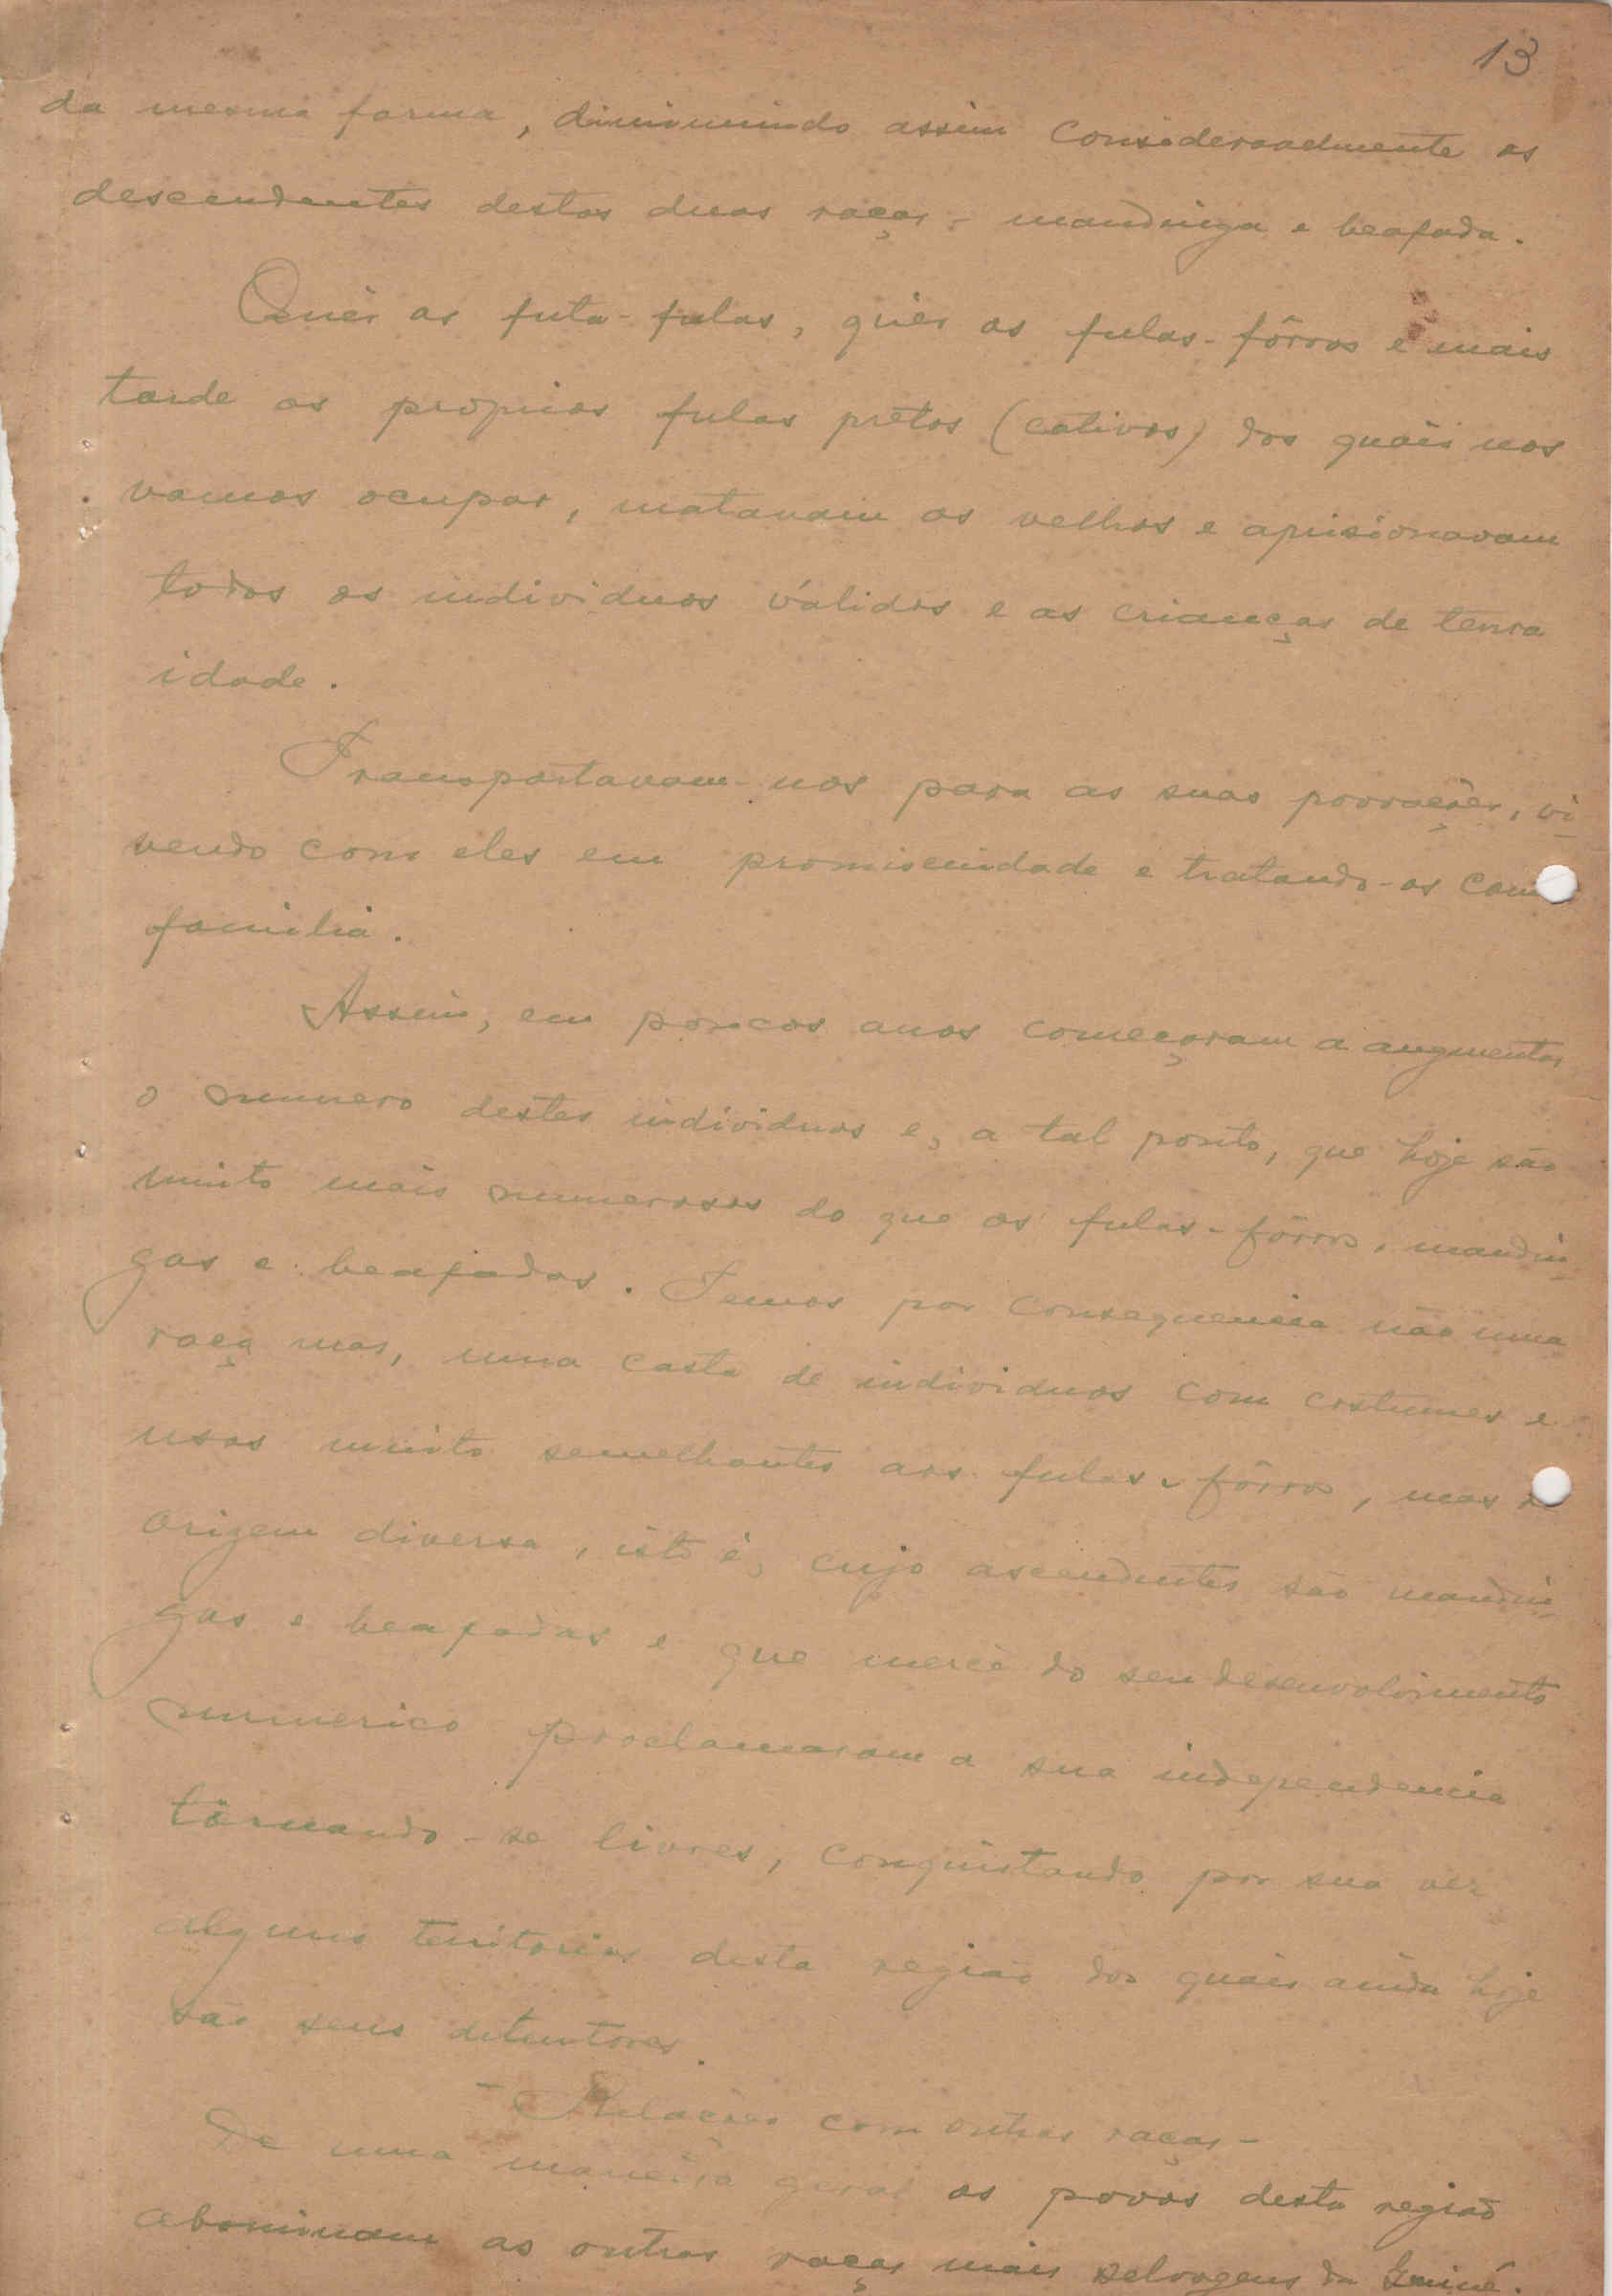 13
da mesma forma, diminuindo assim consideravelmente os
descendentes destas duas raças - mandinga e beafada.
Quér os futa-fulas, quér os fulas-fôrros e mais
tarde os proprios fulas prêtos (cativos) dos quais nos
vamos ocupar, matavam os velhos e aprisionavam
todos os individuos válidos e as crianças de tenra
idade.
Transportavam-nos para as suas povoações, vi-
vendo com eles em promiscuidade e tratando-os como
familia.
Assim, em poucos anos começaram a augmentar
o numero destes individuos e, a tal ponto, que hoje são
muito mais numerosos do que os fulas-fôrros, mandin-
gas e beafadas. Temos por consequencia não uma
raça mas, uma casta de individuos com costumes e
usos muito semelhantes aos fulas-fôrros, mas de
origem diversa, isto é, cujo ascendentes são mandin-
gas e beafadas e que mercê do seu desenvolvimento
numerico proclamaram a sua independencia
tornando-se livres, conquistando por sua vez
alguns territorios desta região dos quais ainda hoje
são seus detentores.
- Relações com outras raças -
De uma maneira geral os povos desta região
abominam as outras raças mais selvagens da Guiné.